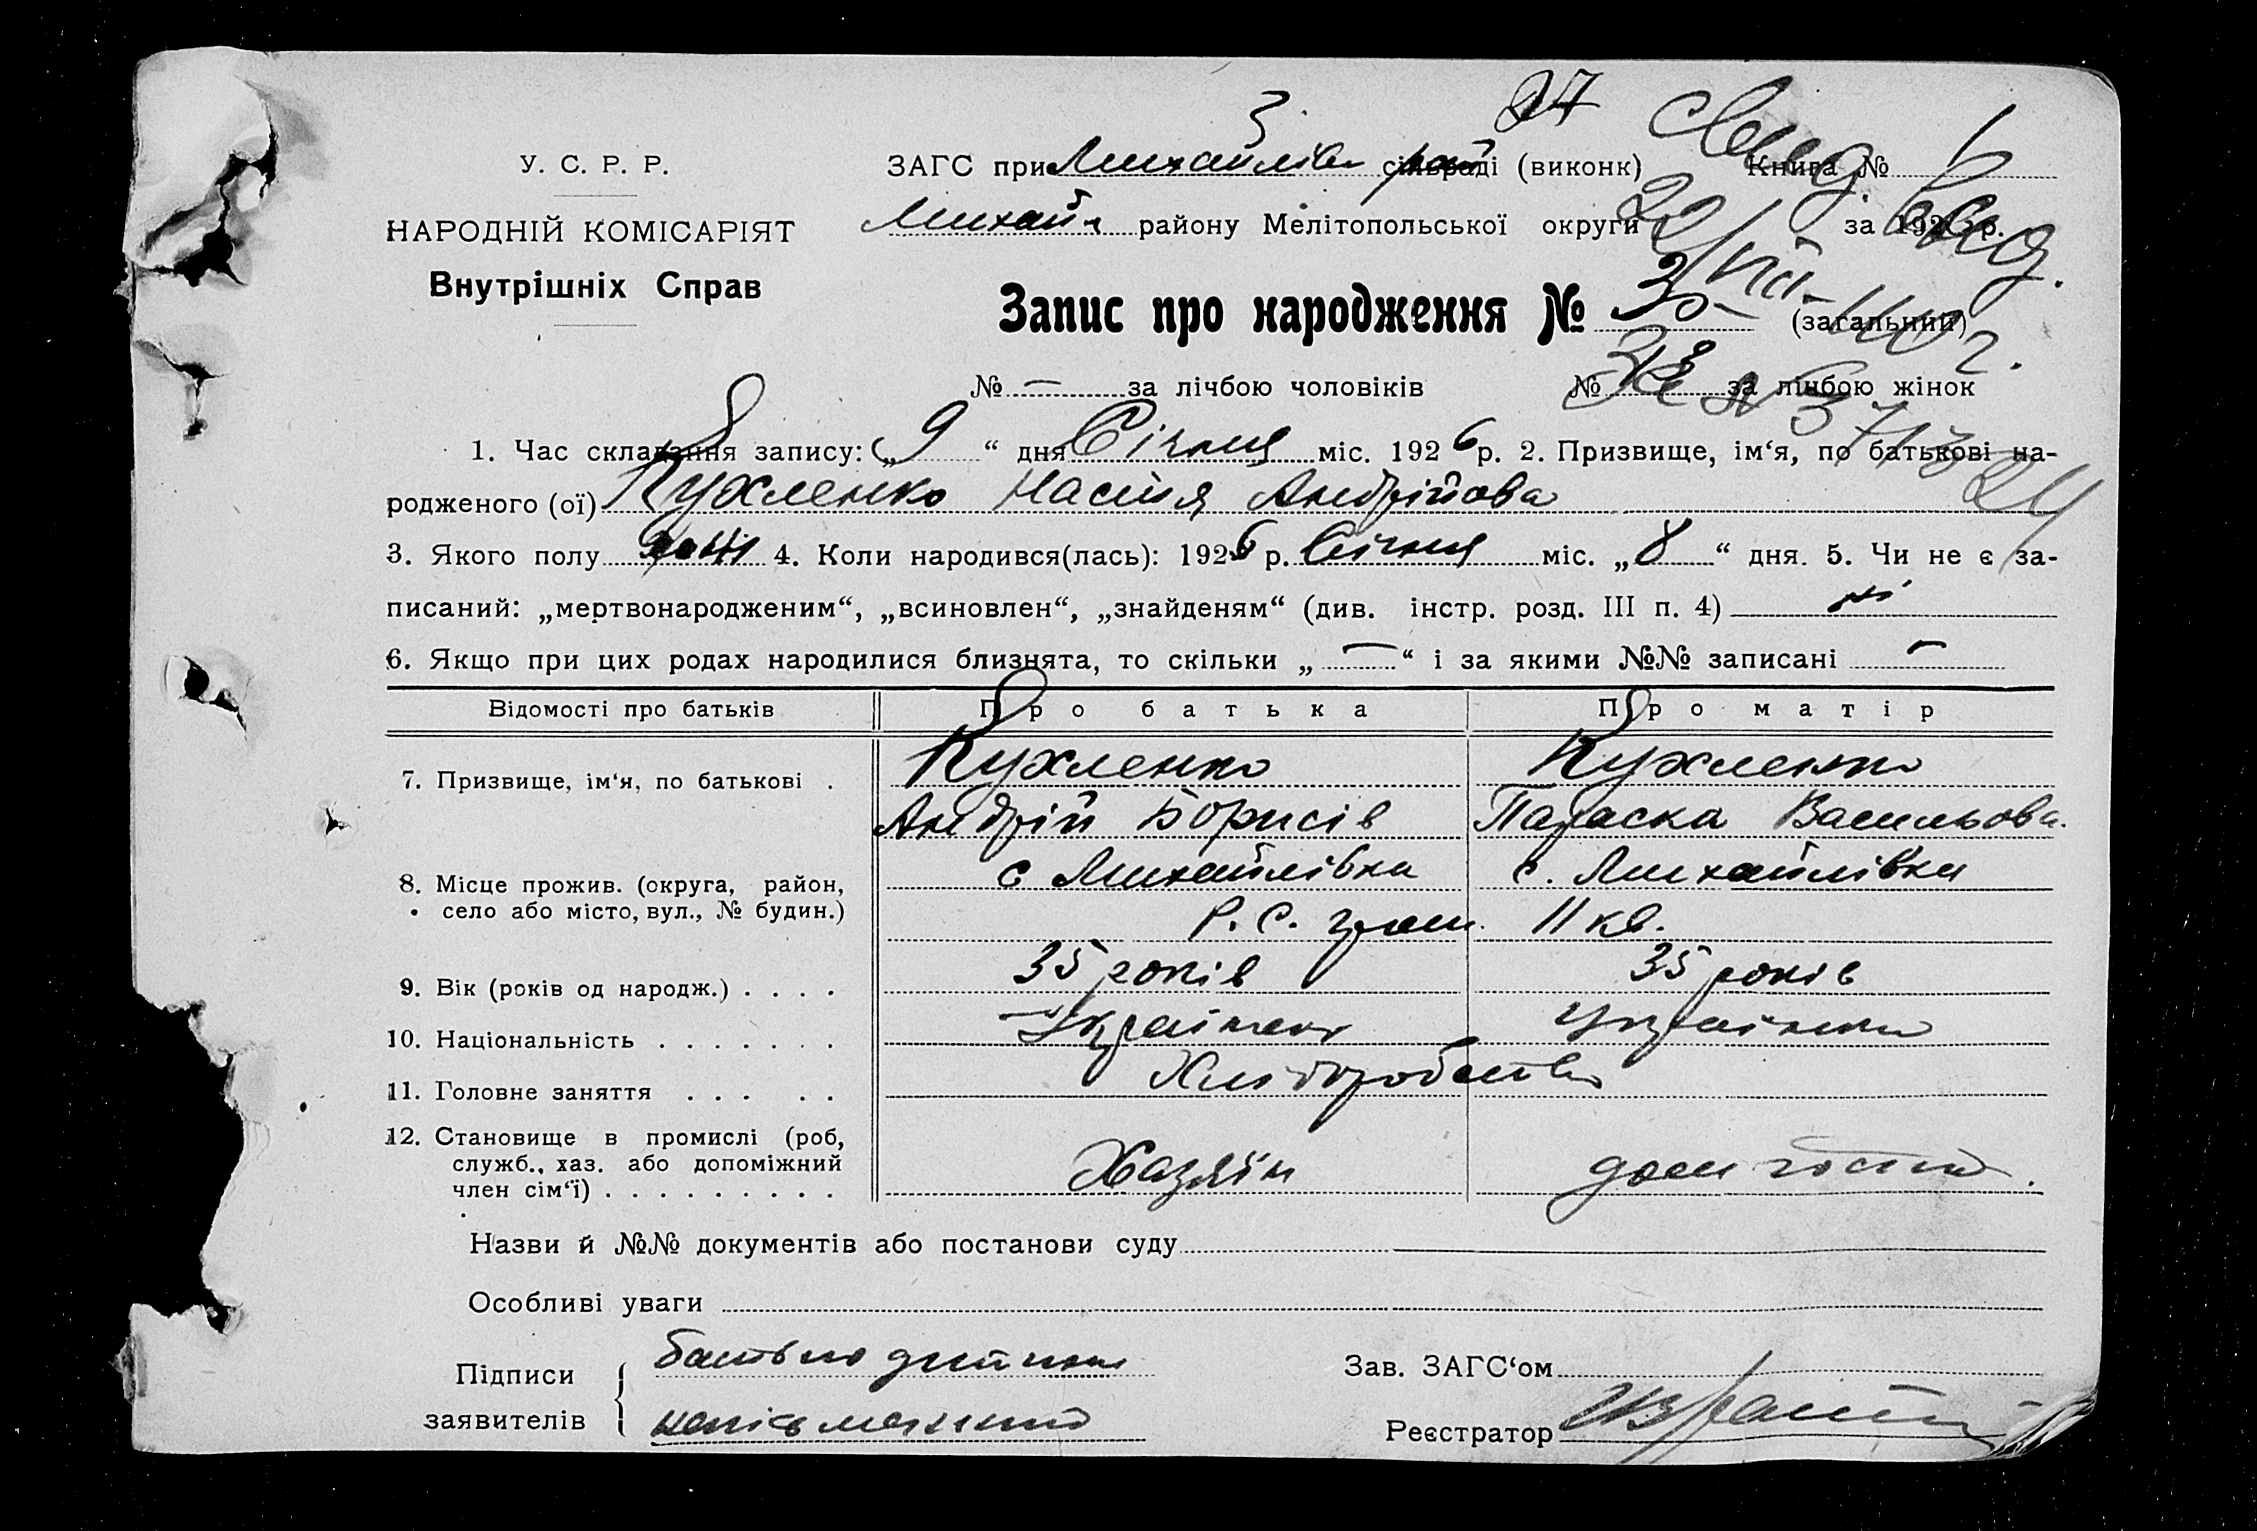 27
У. С. Р. Р.
ЗАГС при Михайлівк сільраді (виконк) Книга №
НАРОДНІЙ КОМІСАРІЯТ
Михайл району Мелітопольської округи за 1926 р.
Внутрішніх Справ
Свид. выд.
22/VII-40 г.
Запис про народження № 35 (загальний)
№ — за лічбою чоловіків № за лічбою жінок
1. Час складання запису: „9“ дня Січня міс. 1926 р. 2. Призвище, ім‘я, по батькові на-
родженого (ої) Кухленко Настя Андрійова
3. Якого полу жін 4. Коли народився(лась): 1926 р. Січня міс. „8“ дня. 5. Чи не є за-
писаний: „мертвонародженим“, „всиновлен“, „знайденям“ (див. інстр. розд. III п. 4) ні
6. Якщо при цих родах народилися близнята, то скільки „—“ і за якими №№ записані —
Відомості про батьків Про батька Про матір
7. Призвище, ім‘я, по батькові . Кухленко Кухленко
Андрій Борисів Параска Васильова.
8. Місце прожив. (округа, район, с Михайлівка с. Михайлівка
село або місто, вул., № будин.) Р. С. гром. II кв.
9. Вік (років од народж.) . . . . 35 років 35 років
10. Національність . . . . . . . Українець українка
11. Головне заняття . . . . . Хліборобство
12. Становище в промислі (роб,
служб., хаз. або допоміжний Хазяїн
член сім‘ї) . . . . . . . . .
Назви й №№ документів або постанови суду
Особливі уваги
Підписи батько дитини Зав. ЗАГС‘ом
заявителів неписьменний Реєстратор